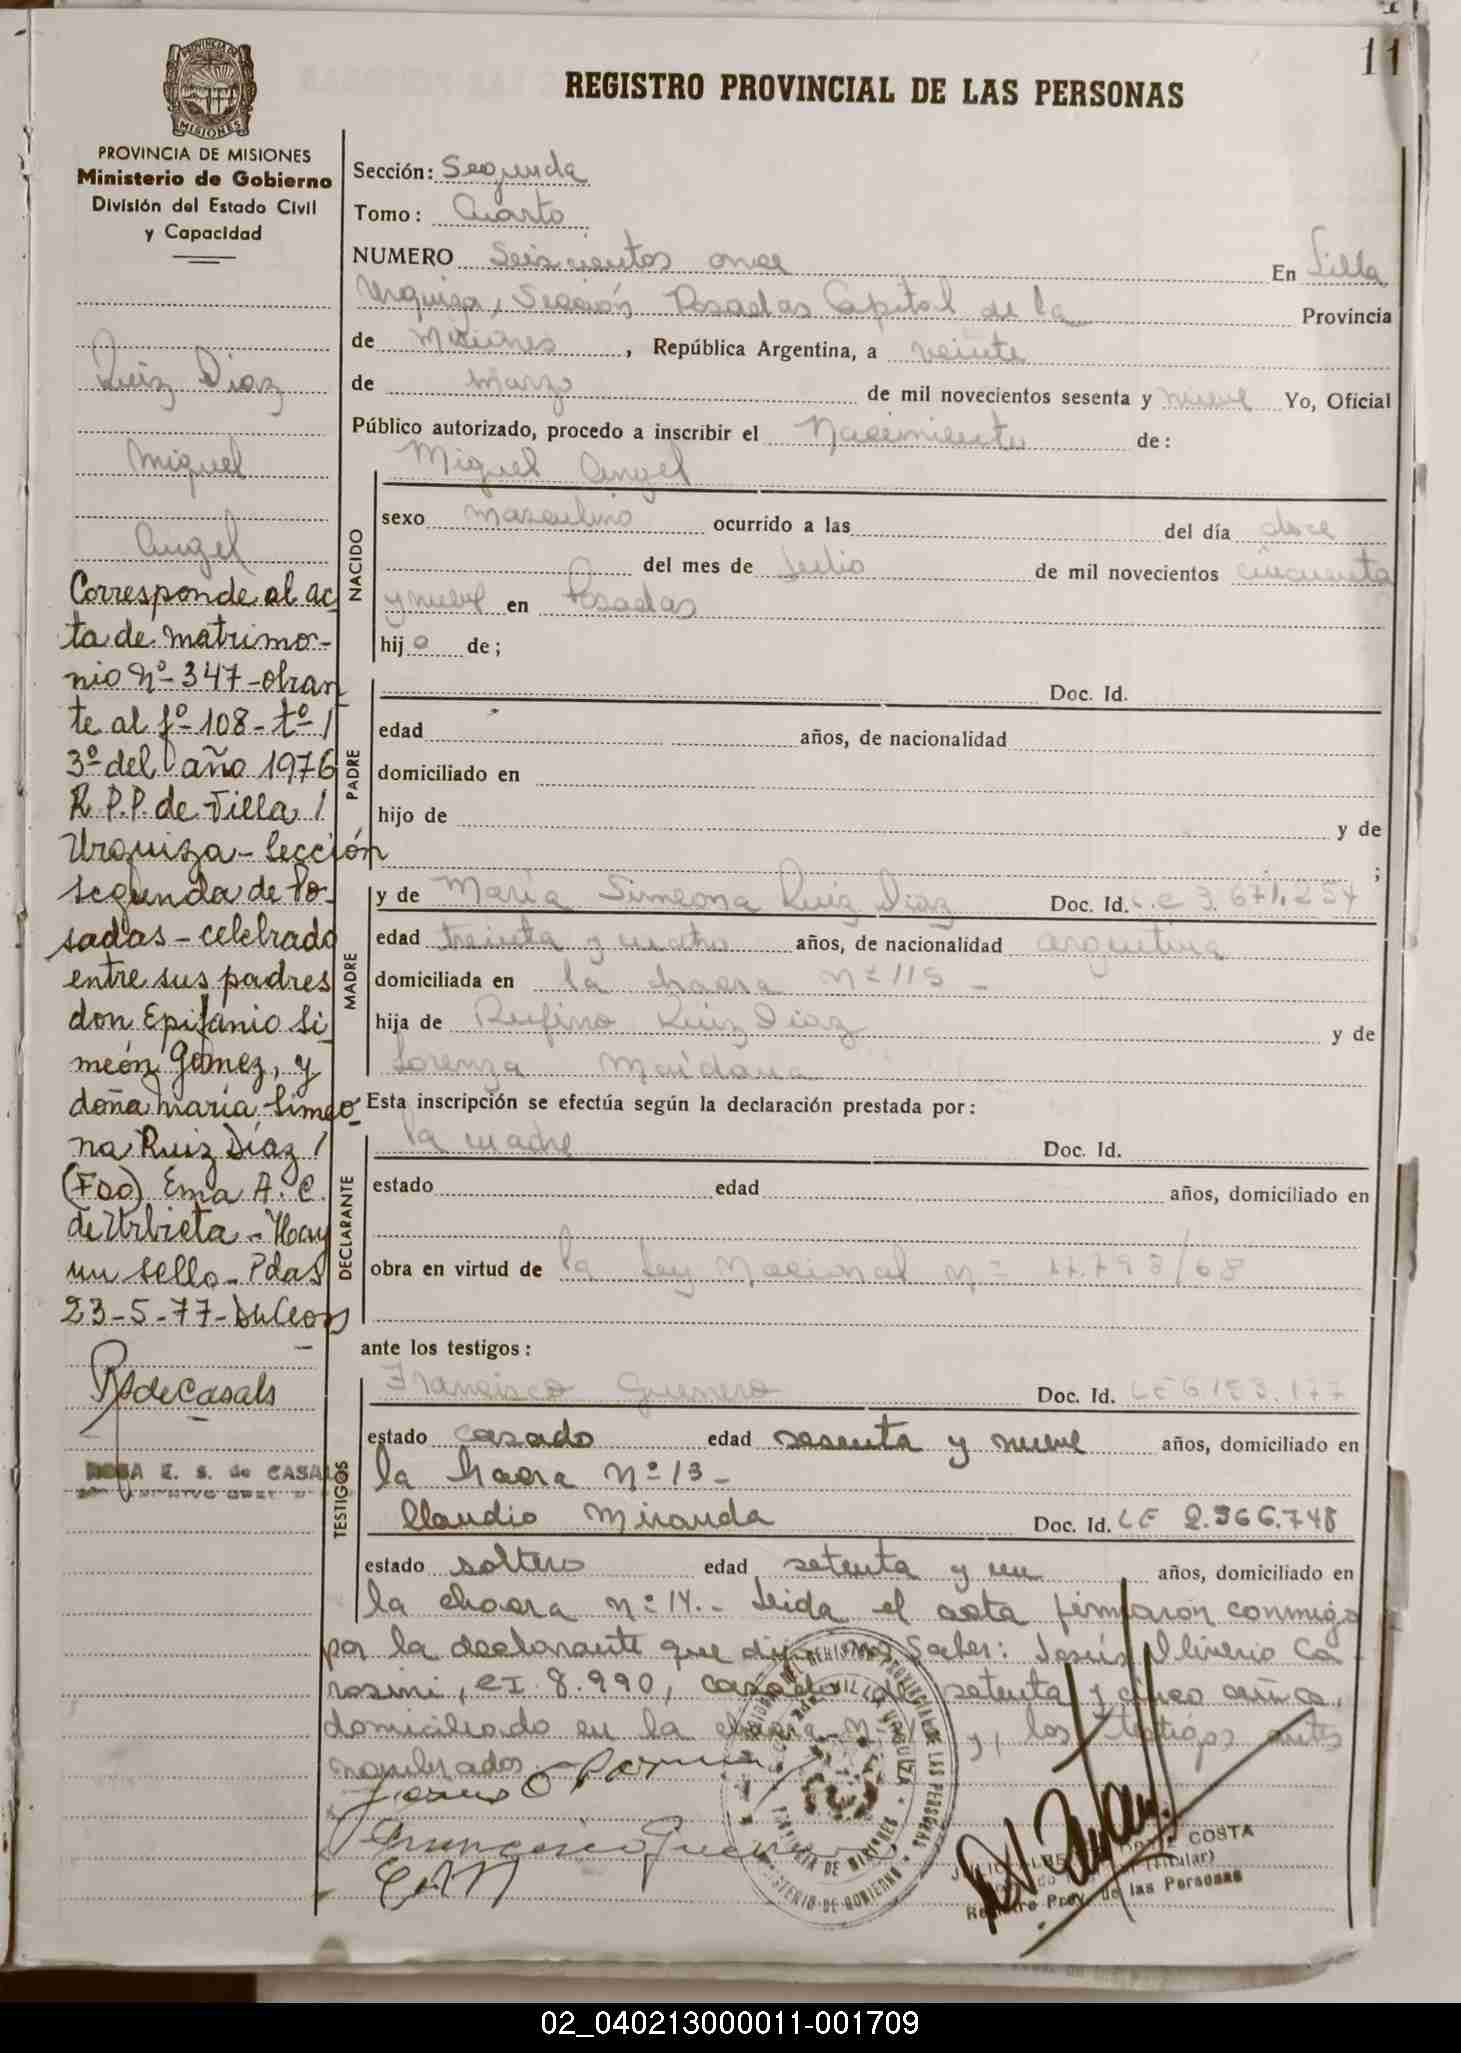 11
PROVINCIA DE
MISIONES
REGISTRO PROVINCIAL DE LAS PERSONAS
PROVINCIA DE MISIONES
Ministerio de Gobierno
División del Estado Civil
y Capacidad
Ruiz Diaz
Miguel
Angel
Corresponde al ac
ta de matrimo-
nio Nº 347-obran
te al fº 108-tº /
3º del año 1976
R.P.P. de Villa /
Urquiza-Sección
segunda de Po-
sadas-celebrado
entre sus padres
don Epifanio Si
meón Gomez, y
doña maría Simeo
na Ruiz Díaz /
(Fdo) Ema A. C.
de Urbieta-Hay
un sello-Pdas
23-5-77-
RSdeCasals
ROSA E. S. de CASALS
Sección: Segunda
Tomo: Cuarto
NUMERO Seiscientos once En Villa
Urquiza, Sección Posadas Capital de la Provincia
de Misiones, República Argentina, a veinte
de marzo de mil novecientos sesenta y nueve Yo, Oficial
Público autorizado, procedo a inscribir el Nacimiento de:
NACIDO
Miguel Angel
sexo masculino ocurrido a las del día doce
del mes de Julio de mil novecientos cincuenta
y nueve en Posadas
hijo de;
PADRE
Doc. Id.
edad años, de nacionalidad
domiciliado en
hijo de y de
;
MADRE
y de María Simeona Ruiz Diaz Doc. Id. L.C 3.671.254
edad treinta y cuatro años, de nacionalidad argentina
domiciliada en la chacra nº 115 -
hija de Rufino Ruiz Diaz y de
Lorenza Maidana
Esta inscripción se efectúa según la declaración prestada por:
DECLARANTE
la madre Doc. Id.
estado edad años, domiciliado en
obra en virtud de la Ley Nacional nº 17.793/68
ante los testigos:
TESTIGOS
Francisco Guerrero Doc. Id. LE 6183.177
estado casado edad sesenta y nueve años, domiciliado en
la chacra nº 13-
Claudio Miranda Doc. Id. LE 2.366.748
estado soltero edad setenta y un años, domiciliado en
la chacra nº 14.- Leida el acta firmaron conmigo
por la declarante que dijo no saber: Jesús Oliverio Ca
rosini, CI 8.990, casado de setenta y cinco años,
domiciliado en la chacra y, los testigos antes
nombrados
Francisco Guerrero
C.M
REGISTRO PROVINCIAL DE LAS PERSONAS
VILLA URQUIZA
PROVINCIA DE MISIONES
MINISTERIO DE GOBIERNO
COSTA
(Titular)
Registro Prov. de las Personas
02_040213000011-001709